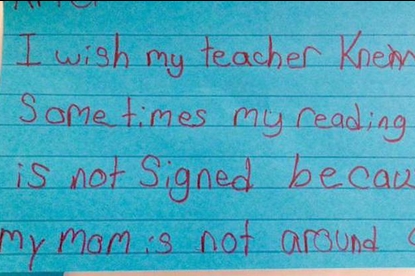 I wish my teacher Knew
Sometimes my reading
is not Signed becau
my mom is not around